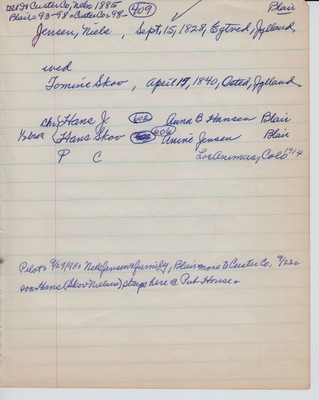 Custer Co, Neb. 1885
Blair = 93-98 = Custer Co = 98- 409 Blair
Jensen, Niels, Sept. 15, 1828, Egtved, Jylland,
wed
Tomine Skov, April 19, 1840, Osted, Jylland,
Chr Hans J 408 Anna B Hansen Blair
1/2 bror Hans Skov 406 Anine Jensen Blair
P C Los Animas, Colo 1914
Pilot = 9/29/98 = Nels Jenson & family, Blair move to Custer Co, 9/22 =
son Hans (Skov Nielsen) stays here @ Pub. House =